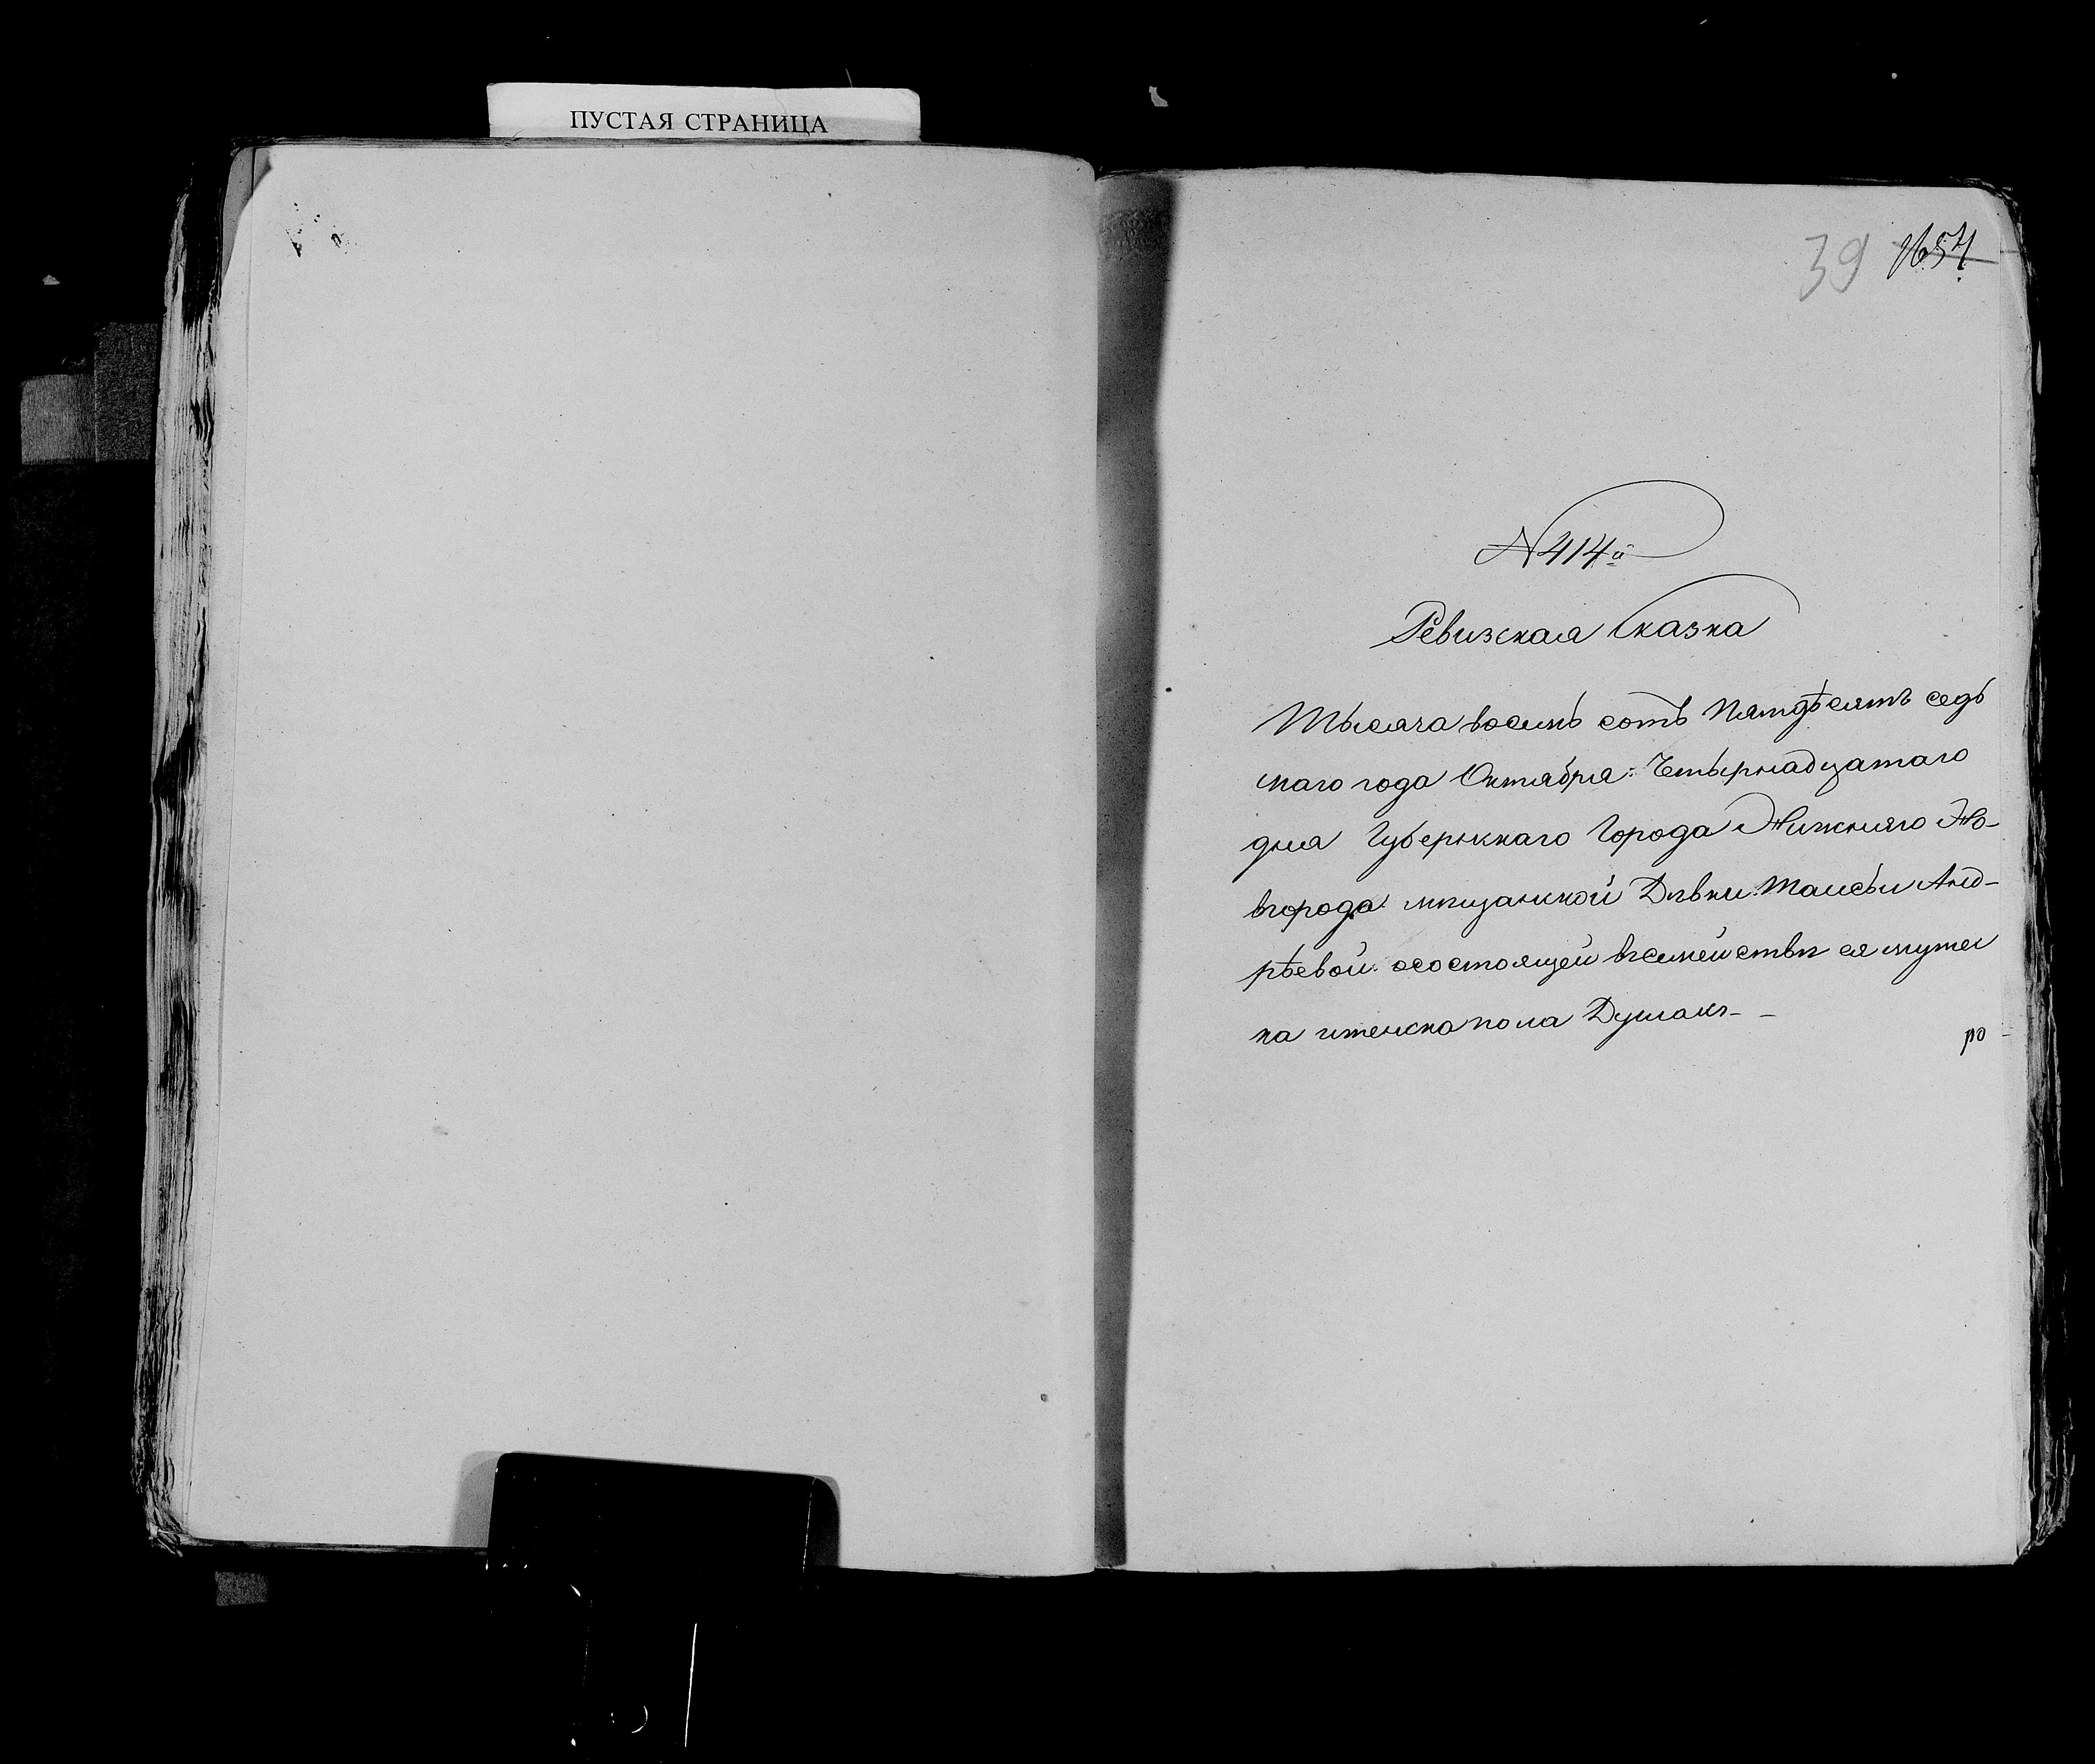 ПУСТАЯ СТРАНИЦА
39
N 414й
Ревизская Сказка
Тысяча восемь сотъ Пятдѣсятъ седь
маго года Октября Четырнадцатаго
дня Губернскаго Города Нижняго Но-
вгорода мѣщанской Дѣвки Таисьи Анд-
рѣевой о состоящей въ семействѣ ея мужес
ка и женска пола Душахъ